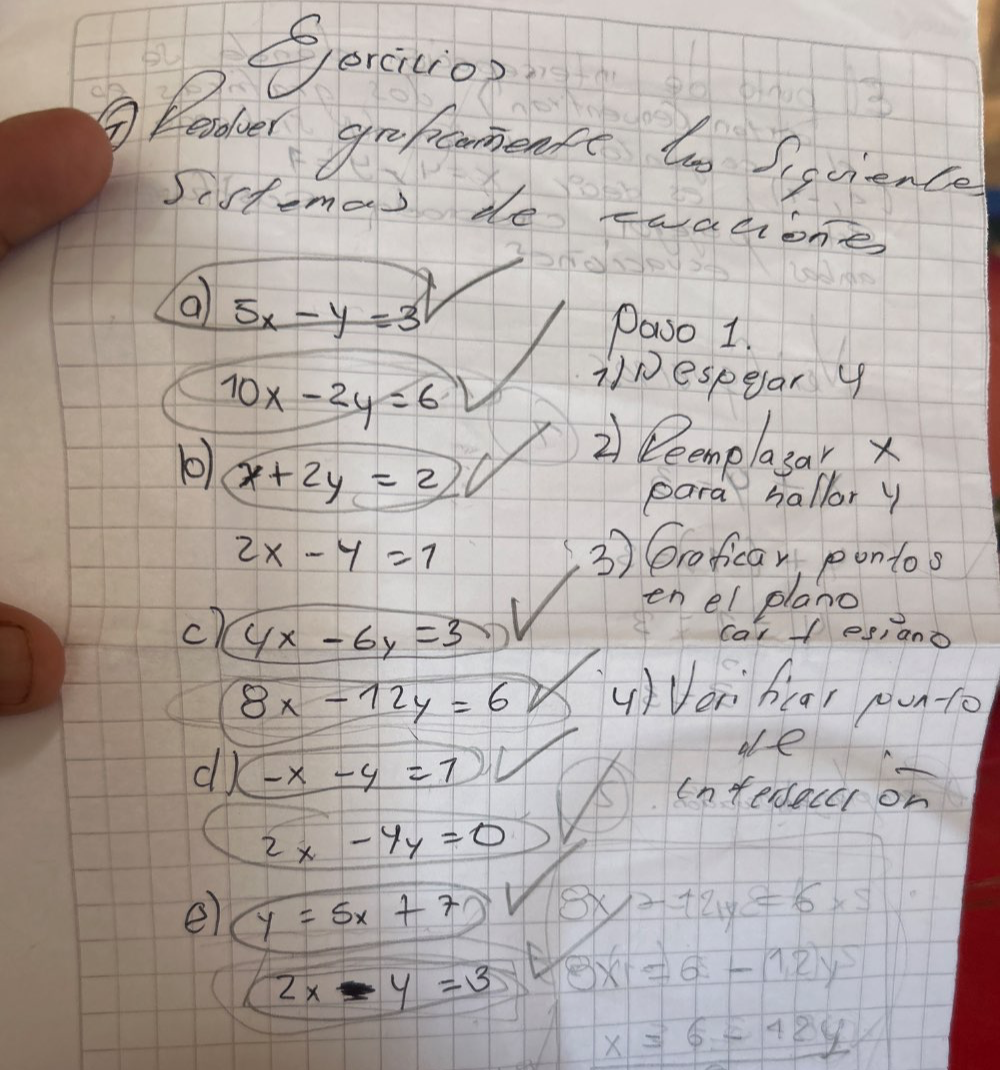 Ejercicios
1) Resolver graficamente los siguientes
sistemas de ecuaciones
a) 5x - y = 3
10x - 2y = 6
b) x + 2y = 2
2x - y = 1
c) 4x - 6y = 3
8x - 12y = 6
d) -x - y = 1
2x - 4y = 0
e) y = 5x + 7
2x - y = 3
Paso 1.
1) Despejar y
2) Reemplazar x
para hallar y
3) Graficar puntos
en el plano
cartesiano
4) Verificar punto
de
intersección
8x - 12y = 6
8x = 6 - 12y
x = 6 - 12y